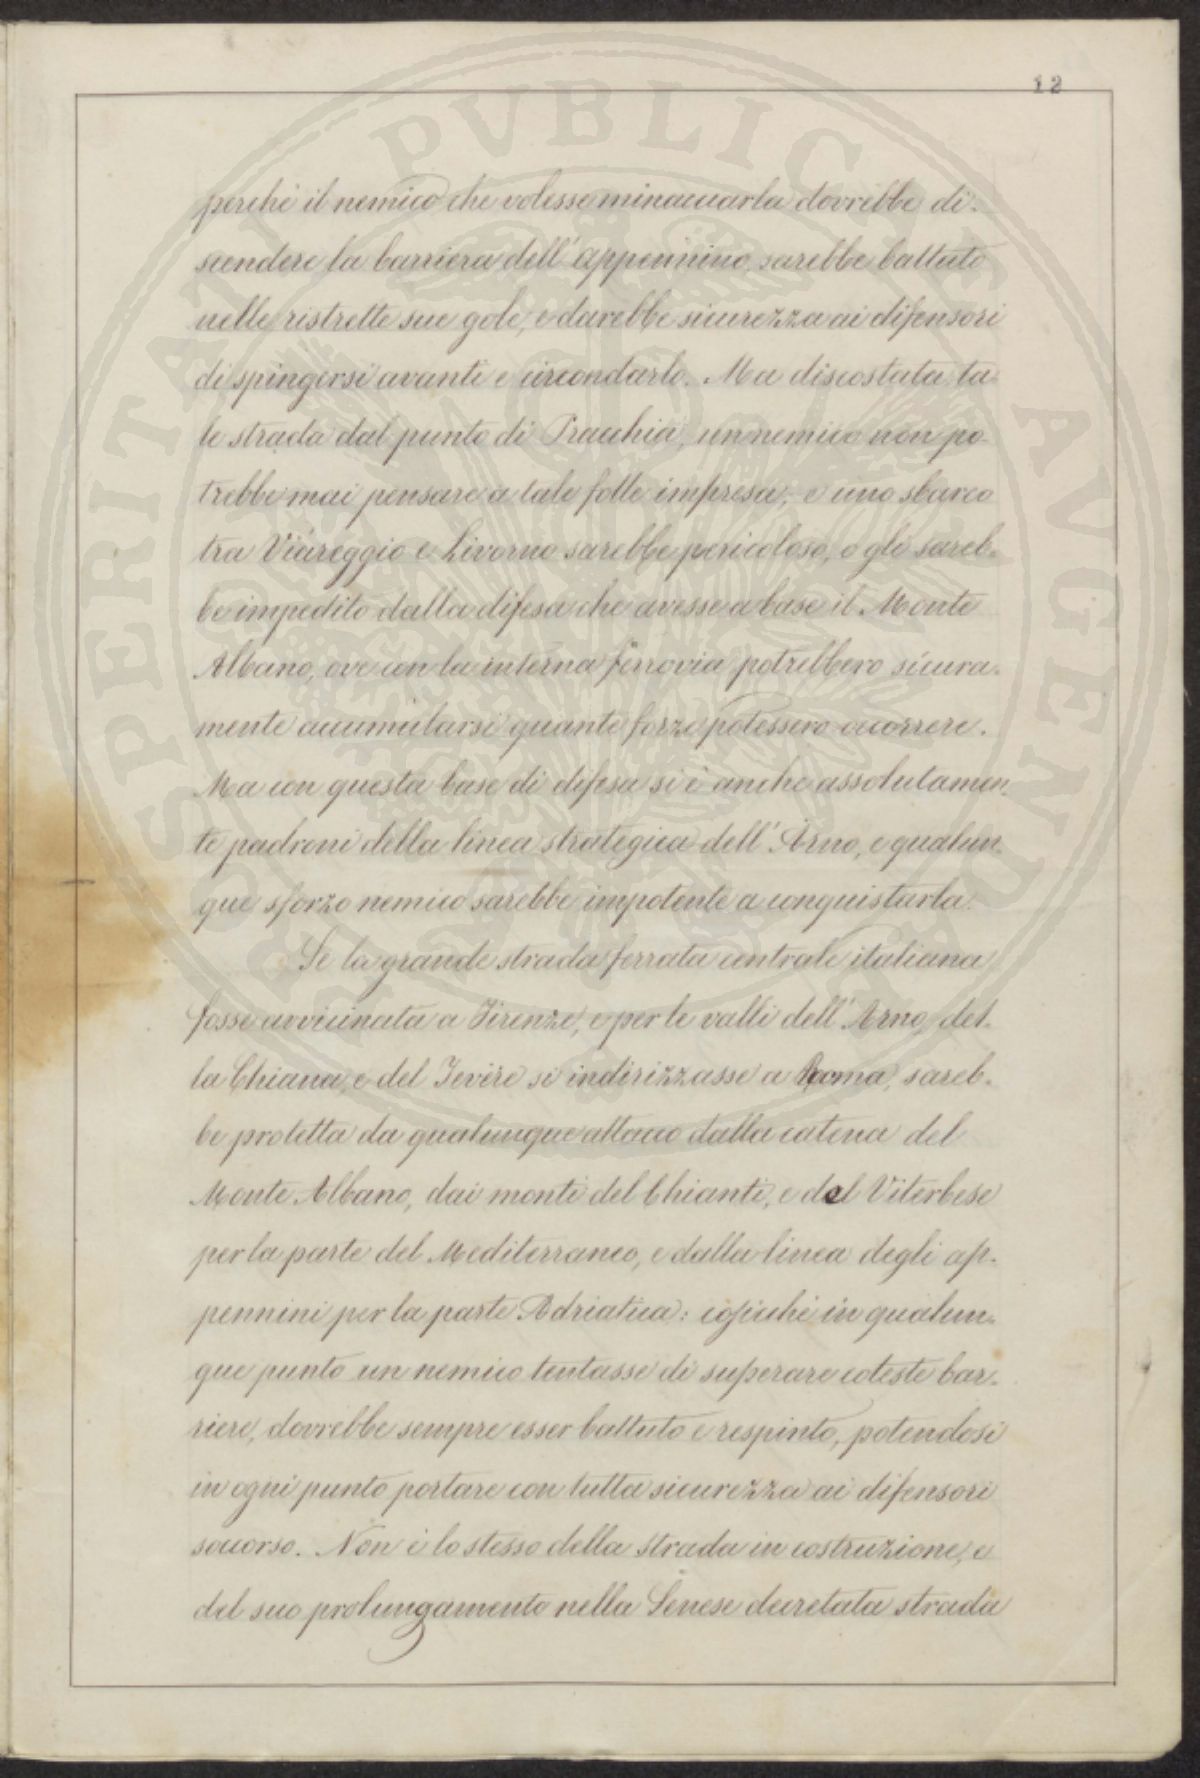 12
perchè il nemico che volesse minacciarla dovrebbe di-
scendere la barriera dell'appennino, sarebbe battuto
nelle ristrette sue gole, e darebbe sicurezza ai difensori
di spingersi avanti e circondarlo. Ma discostata ta-
le strada dal punto di Pracchia, un nemico non po-
trebbe mai pensare a tale folle impresa; e uno sbarco
tra Viareggio e Livorno sarebbe pericoloso, o gli sareb-
be impedito dalla difesa che avesse a base il Monte
Albano, ove con la interna ferrovia potrebbero sicura-
mente accumularsi quante forze potessero occorrere.
Ma con questa base di difesa si è anche assolutamen-
te padroni della linea strategica dell'Arno, e qualun-
que sforzo nemico sarebbe impotente a conquistarla.
Se la grande strada ferrata centrale italiana
fosse avvicinata a Firenze, e per le valli dell'Arno, del-
la Chiana, e del Tevere si indirizzasse a Roma, sareb-
be protetta da qualunque attacco dalla catena del
Monte Albano, dai monti del Chianti, e del Viterbese
per la parte del Mediterraneo, e dalla linea degli ap-
pennini per la parte Adriatica: cosicchè in qualun-
que punto un nemico tentasse di superare coteste bar-
riere, dovrebbe sempre esser battuto e respinto, potendosi
in ogni punto portare con tutta sicurezza ai difensori
soccorso. Non è lo stesso della strada in costruzione, e
del suo prolungamento nella Senese decretata strada
PROSPERITATI PVBLICAE AVGENDAE